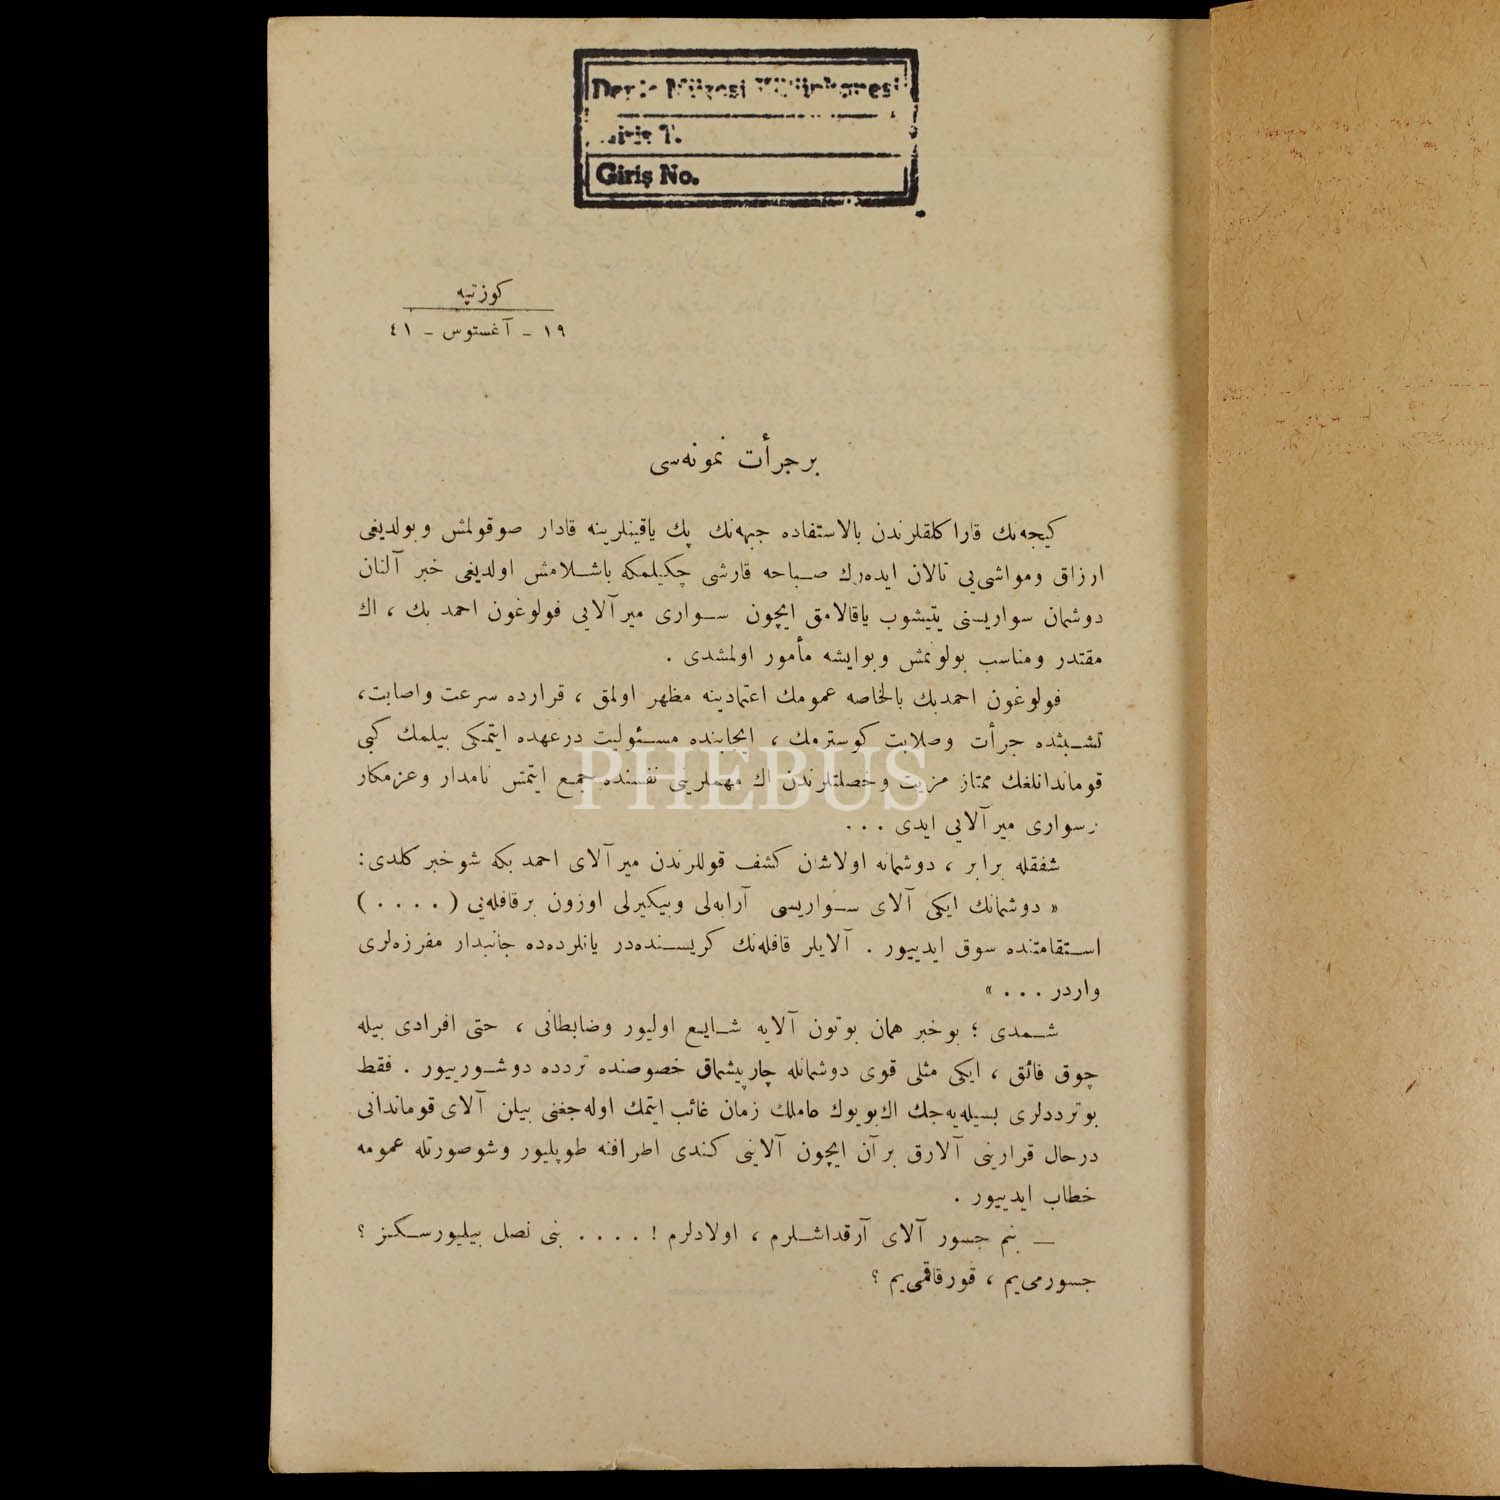 Deniz Müzesi Kütüphanesi
Giriş T.
Giriş No.
كوزتپه
١٩ - آغستوس - ٤١
بر جرأت نمونه‌سی
كیجه‌نك قاراكلقلرندن بالاستفاده جبهه‌نك پك یاقینلرینه قادار صوقولمش و بولدیغی
ارزاق ومواشی‌یی تالان ایده‌رك صباحه قارشی چكیلمكه باشلامش اولدیغی خبر آلنان
دوشمان سواریسنی یتیشوب یاقالامق ایچون سواری میرآلایی فولوغون احمد بك ، اك
مقتدر ومناسب بولونمش وبوایشه مأمور اولمشدی .
فولوغون احمدبك بالخاصه عمومك اعتمادینه مظهر اولمق ، قرارده سرعت واصابت ،
تشبثده جرأت وصلابت كوسترمك ، ایجابنده مسئولیت درعهده ایتمكی بیلمك كبی
قوماندانلغك ممتاز مزیت وخصلتلرندن اك مهملرینی نفسنده جمع ایتمش نامدار وعزمكار
سواری میرآلایی ایدی . . .
شفقله برابر ، دوشمانه اولاشان كشف قوللرندن میرآلای احمد بكه شوخبر كلدی :
« دوشمانك ایكی آلای سواریسی آرابه‌لی وبیكیرلی اوزون برقافله‌یی ( . . . . )
استقامتنده سوق ایدییور . آلایلر قافله‌نك كریسنده‌در یانلرده‌ده جانبدار مفرزه‌لری
واردر . . . »
شمدی ؛ بوخبر همان بوتون آلایه شایع اولیور وضابطانی ، حتی افرادی بیله
چوق فائق ، ایكی مثلی قوی دوشمانله چارپیشماق خصوصنده تردده دوشورییور . فقط
بوترددلری بسیله‌یه‌جك اك‌بویوك عاملك زمان غائب ایتمك اوله‌جغنی بیلن آلای قوماندانی
درحال قرارینی آلارق برآن ایچون آلاینی كندی اطرافنه طوپلیور وشوصورتله عمومه
خطاب ایدییور .
— بنم جسور آلای آرقداشلرم ، اولادلرم ! . . . . بنی نصل بیلیورسكز ؟
جسورمی‌یم ، قورقاقمی‌یم ؟
PHEBUS